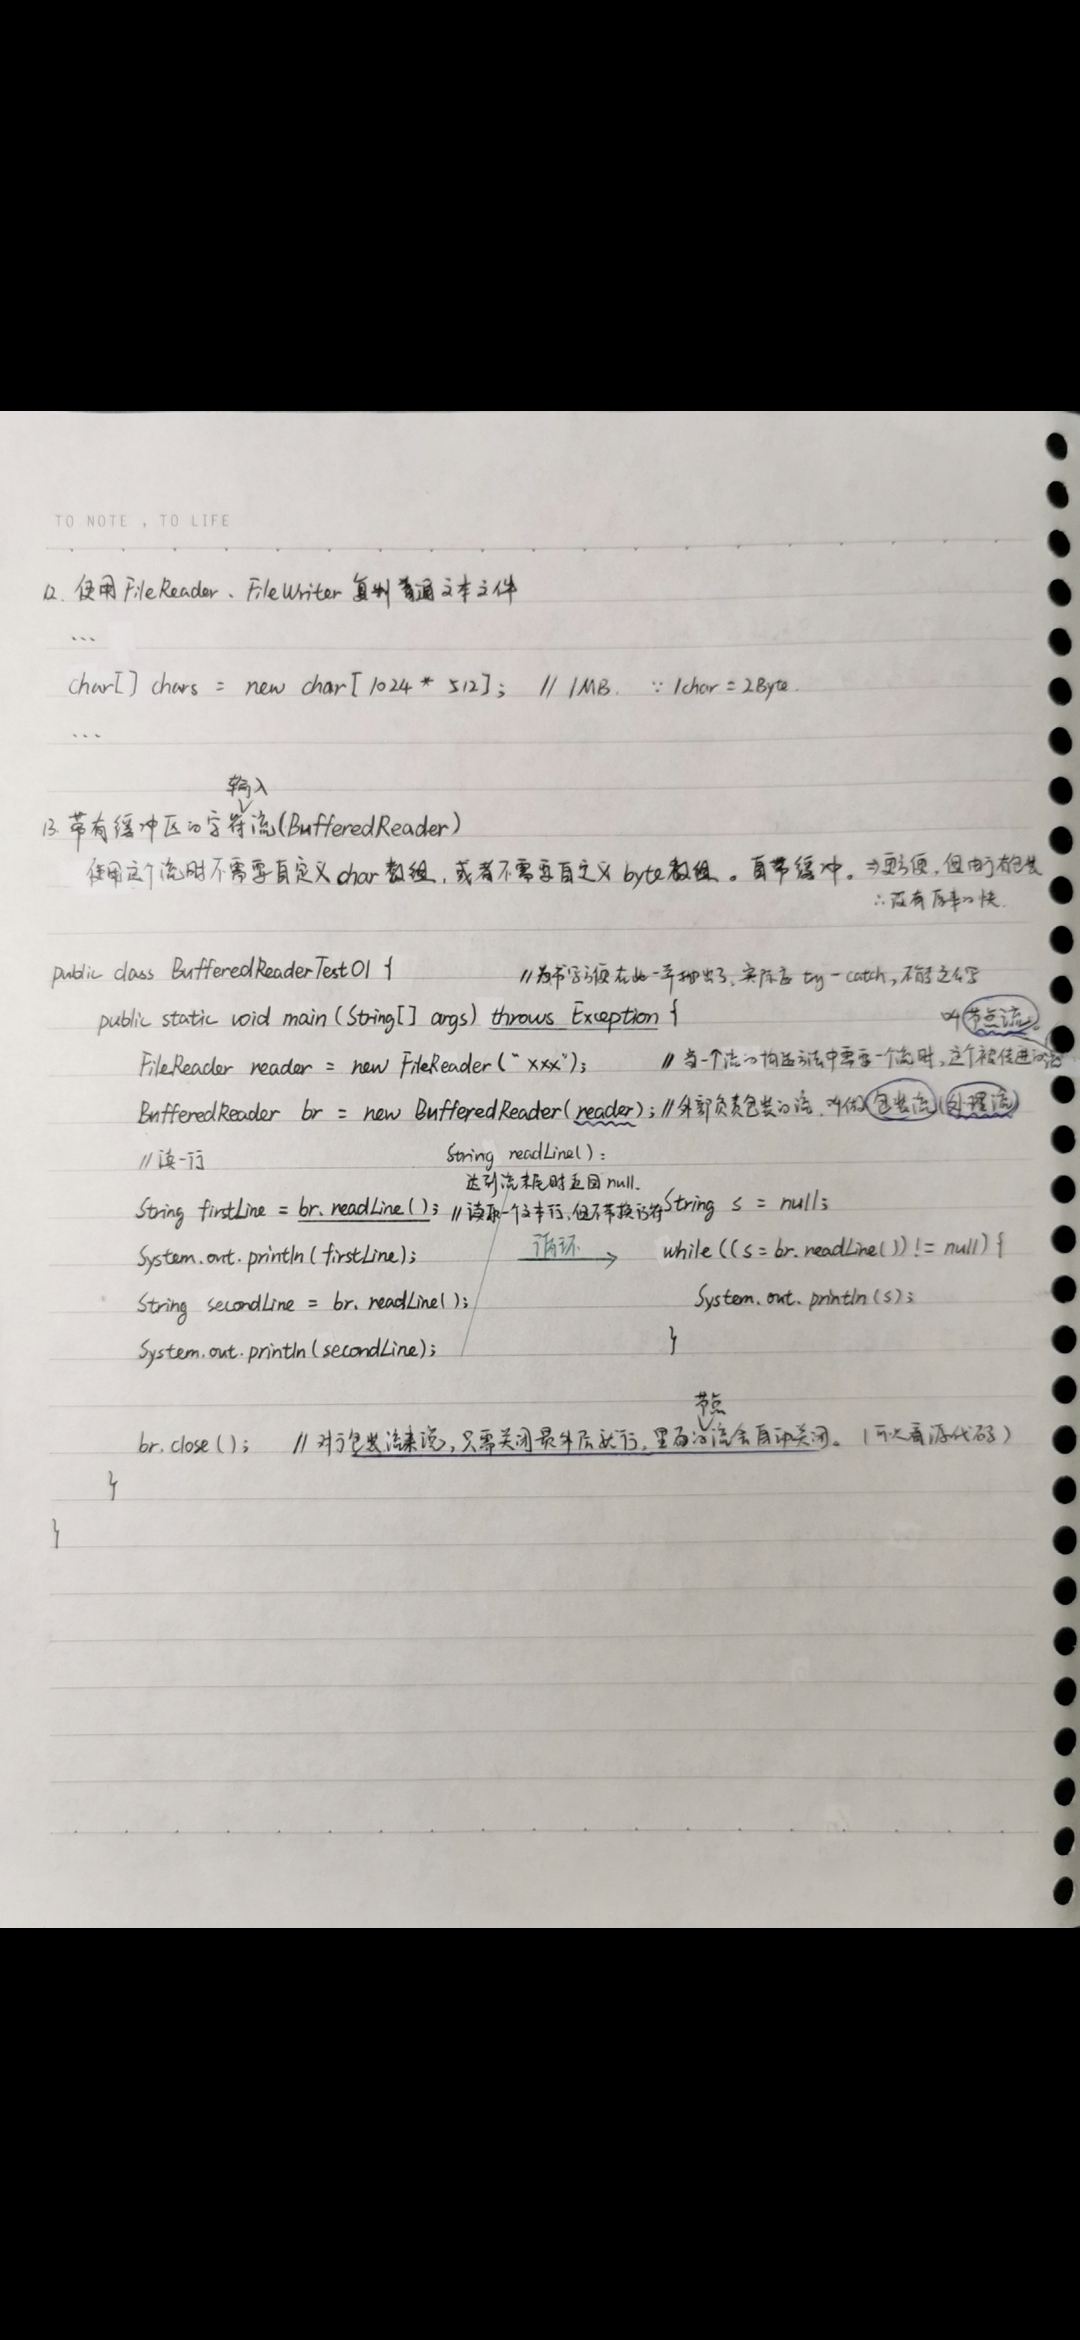 TO NOTE , TO LIFE
12. 使用 FileReader、FileWriter 复制普通文本文件
...
char[] chars = new char[1024 * 512]; // 1MB. ∵ 1char = 2Byte.
...
输入
13. 带有缓冲区的字符流(BufferedReader)
使用这个流时不需要自定义 char 数组, 或者不需要自定义 byte 数组。自带缓冲。⇒更方便, 但由于有包装
∴没有原来的快.
public class BufferedReaderTest01 { //为书写方便在此一并抛出了, 实际要 try-catch, 不能这么写
public static void main (String[] args) throws Exception { 叫节点流.
FileReader reader = new FileReader("xxx"); // 当一个流的构造方法中需要一个流时, 这个被传进的流
BufferedReader br = new BufferedReader(reader); // 外部负责包装的流, 叫做包装流(处理流)
//读一行 String readLine():
达到流末尾时返回 null.
String firstLine = br.readLine(); // 读取一个文本行, 但不带换行符 String s = null;
System.out.println(firstLine); 循环 → while ((s = br.readLine()) != null) {
String secondLine = br.readLine(); System.out.println(s);
System.out.println(secondLine); }
节点
br.close(); // 对于包装流来说, 只需关闭最外层就行, 里面的流会自动关闭。(可以看源代码)
}
}